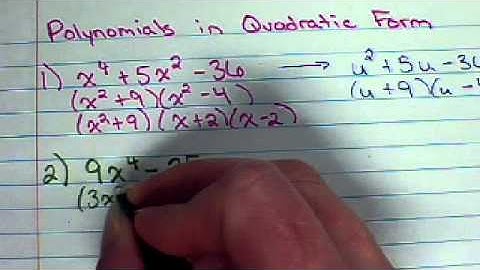 Polynomials in Quadratic Form
1) x⁴ + 5x² - 36 → u² + 5u - 36
(x² + 9)(x² - 4) (u + 9)(u - 4
(x² + 9)(x + 2)(x - 2)
2) 9x⁴ - 25
(3x²